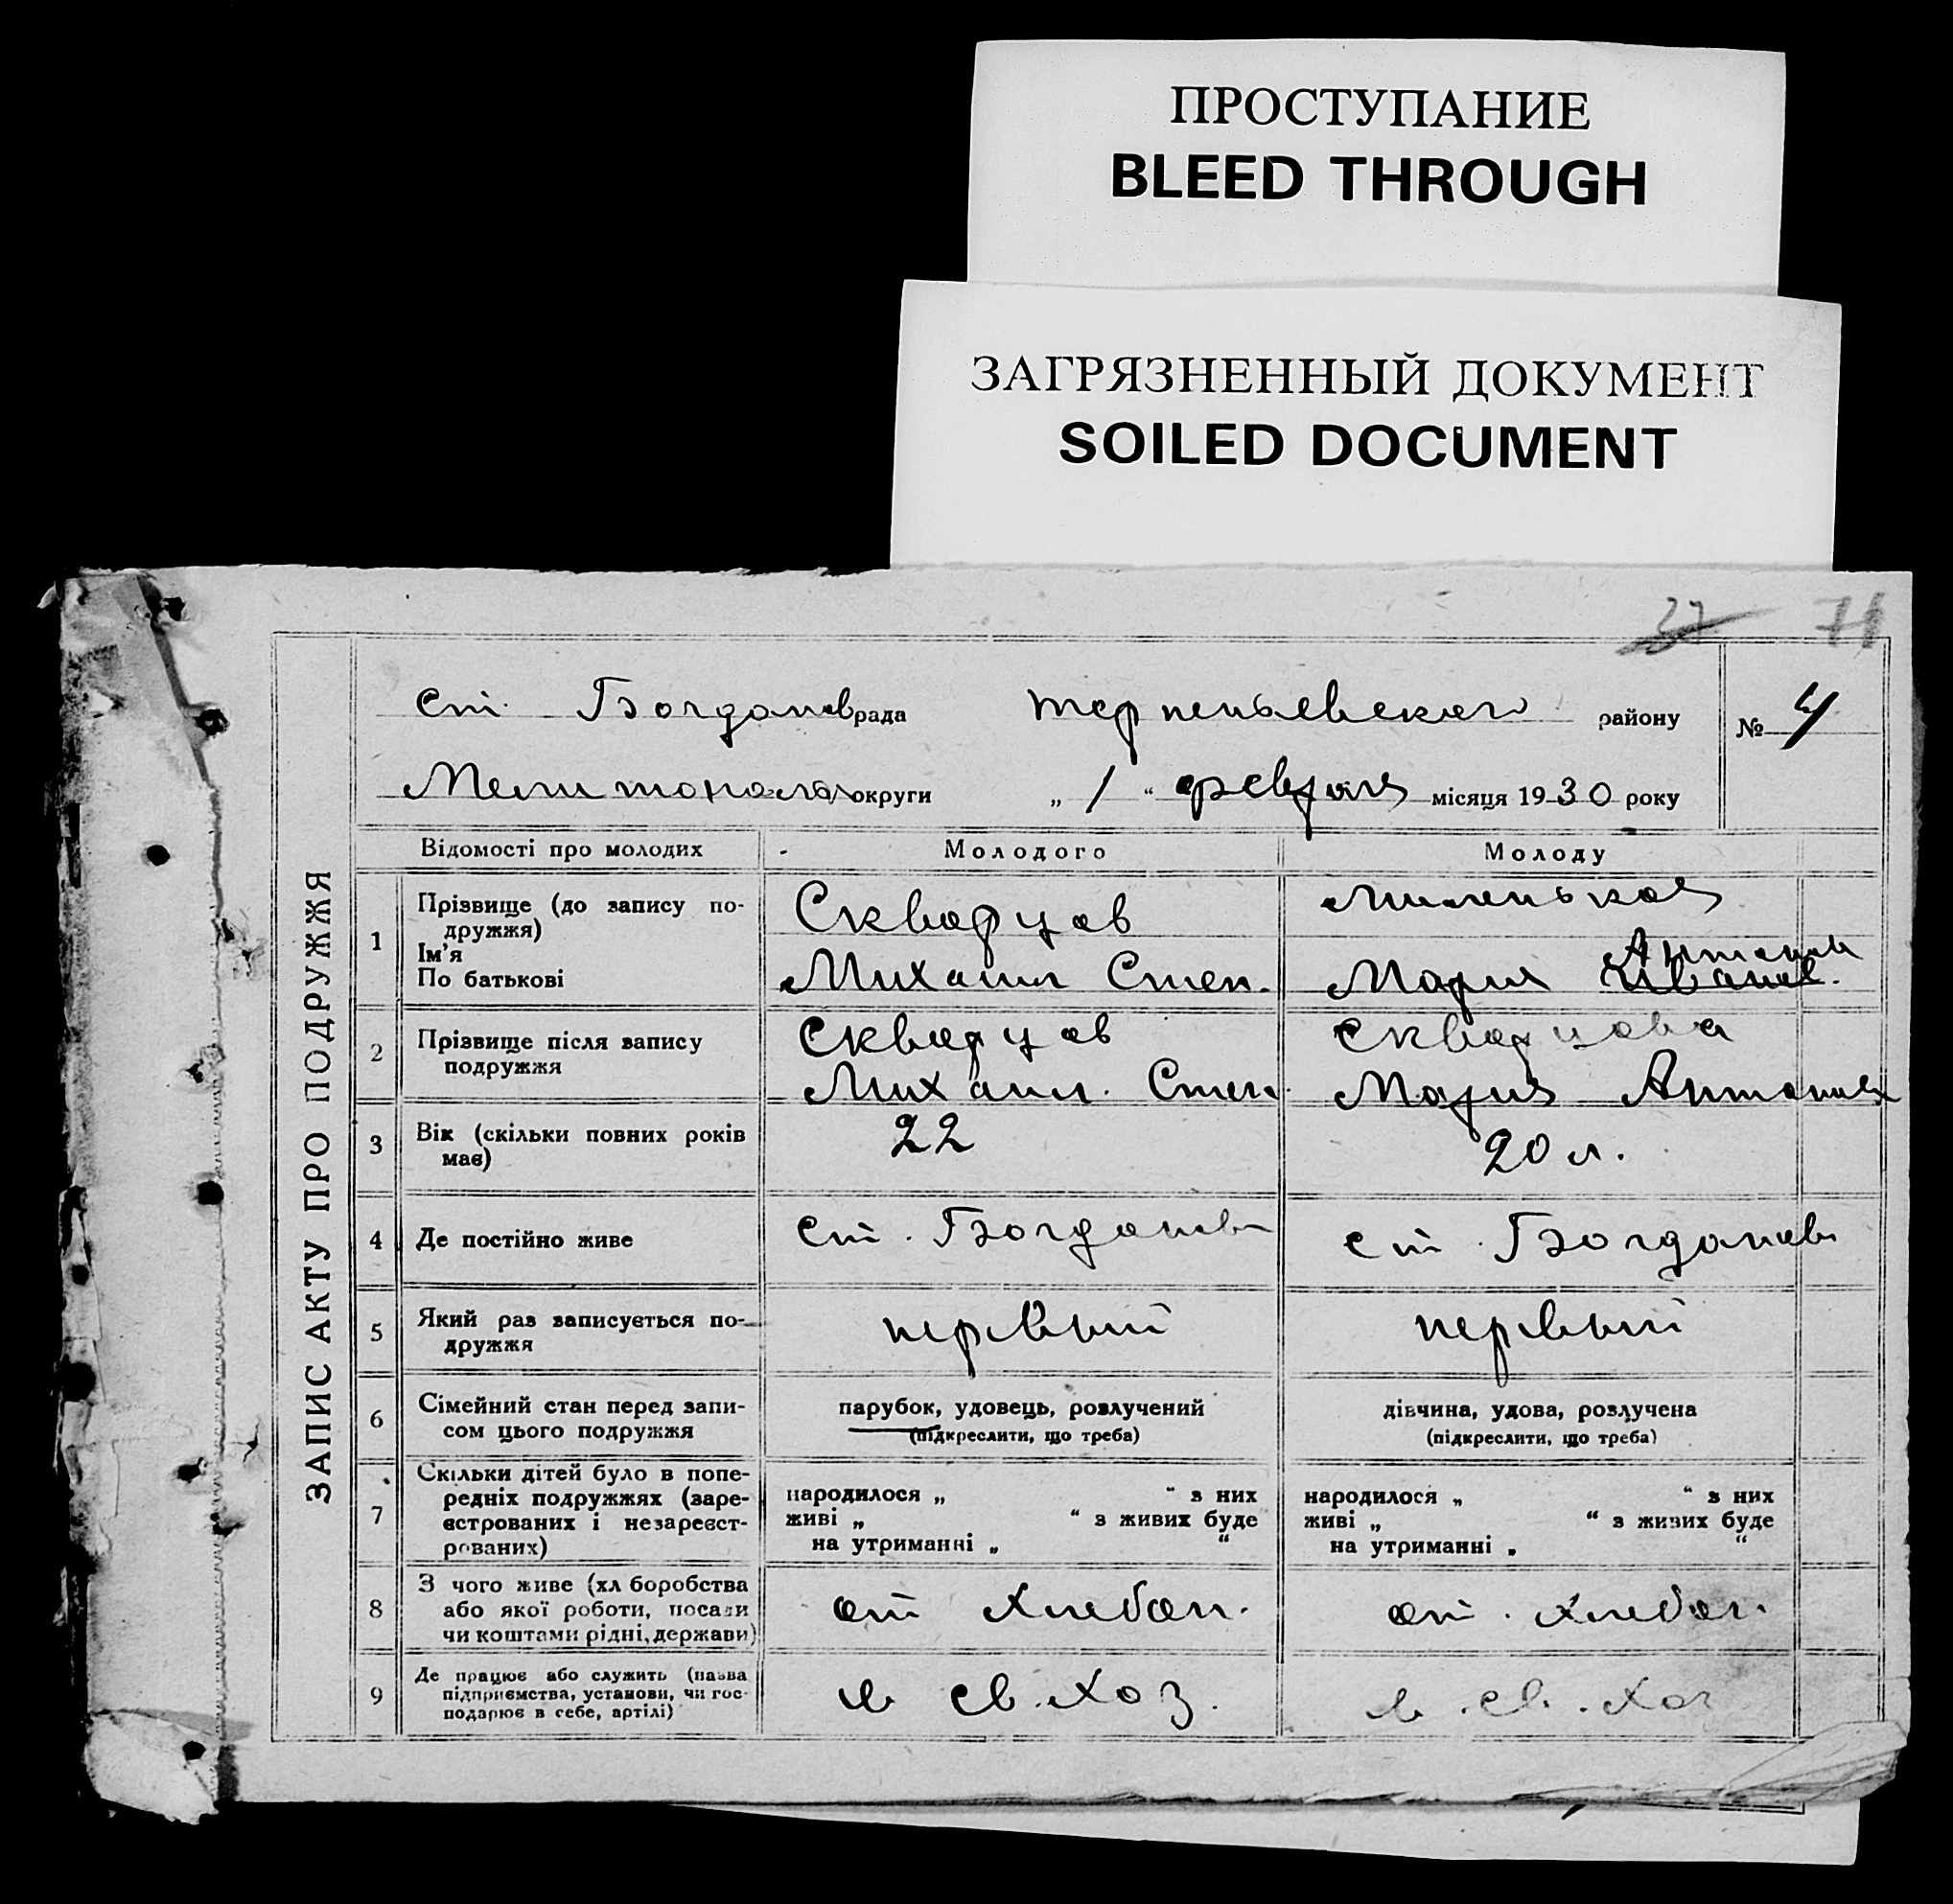 ПРОСТУПАНИЕ
BLEED THROUGH
ЗАГРЯЗНЕННЫЙ ДОКУМЕНТ
SOILED DOCUMENT
37 71
ЗАПИС АКТУ ПРО ПОДРУЖЖЯ
Ст. Богданов рада Терпеньевского району № 4
Мелитопола округи „ 1 “ февраля місяця 1930 року
Відомості про молодих Молодого Молоду
1 Прізвище (до запису по-
дружжя)
Ім'я
По батькові
Скворцов
Михаил Степ.
Мария Иванов. Антонов
2 Прізвище після запису
подружжя
Скворцов
Михаил. Степ.
Скворцова
Мария Антонов
3 Вік (скільки повних років
має)
22
20 л.
4 Де постійно живе
Ст. Богданов
Ст. Богданов
5 Який раз записується по-
дружжя
первый
первый
6 Сімейний стан перед запи-
сом цього подружжя
парубок, удовець, розлучений
(підкреслити, що треба)
дівчина, удова, розлучена
(підкреслити, що треба)
7 Скільки дітей було в попе-
редніх подружжях (заре-
єстрованих і незареєст-
рованих)
народилося „ “ з них
живі „ “ з живих буде
на утриманні „ “
народилося „ “ з них
живі „ “ з живих буде
на утриманні „ “
8 З чого живе (хліборобства
або якої роботи, посади
чи коштами рідні, держави)
от хлебоп.
от. хлебоп.
9 Де працює або служить (назва
підприємства, установи, чи гос-
подарює в себе, артілі)
в св. хоз.
в. св. хоз